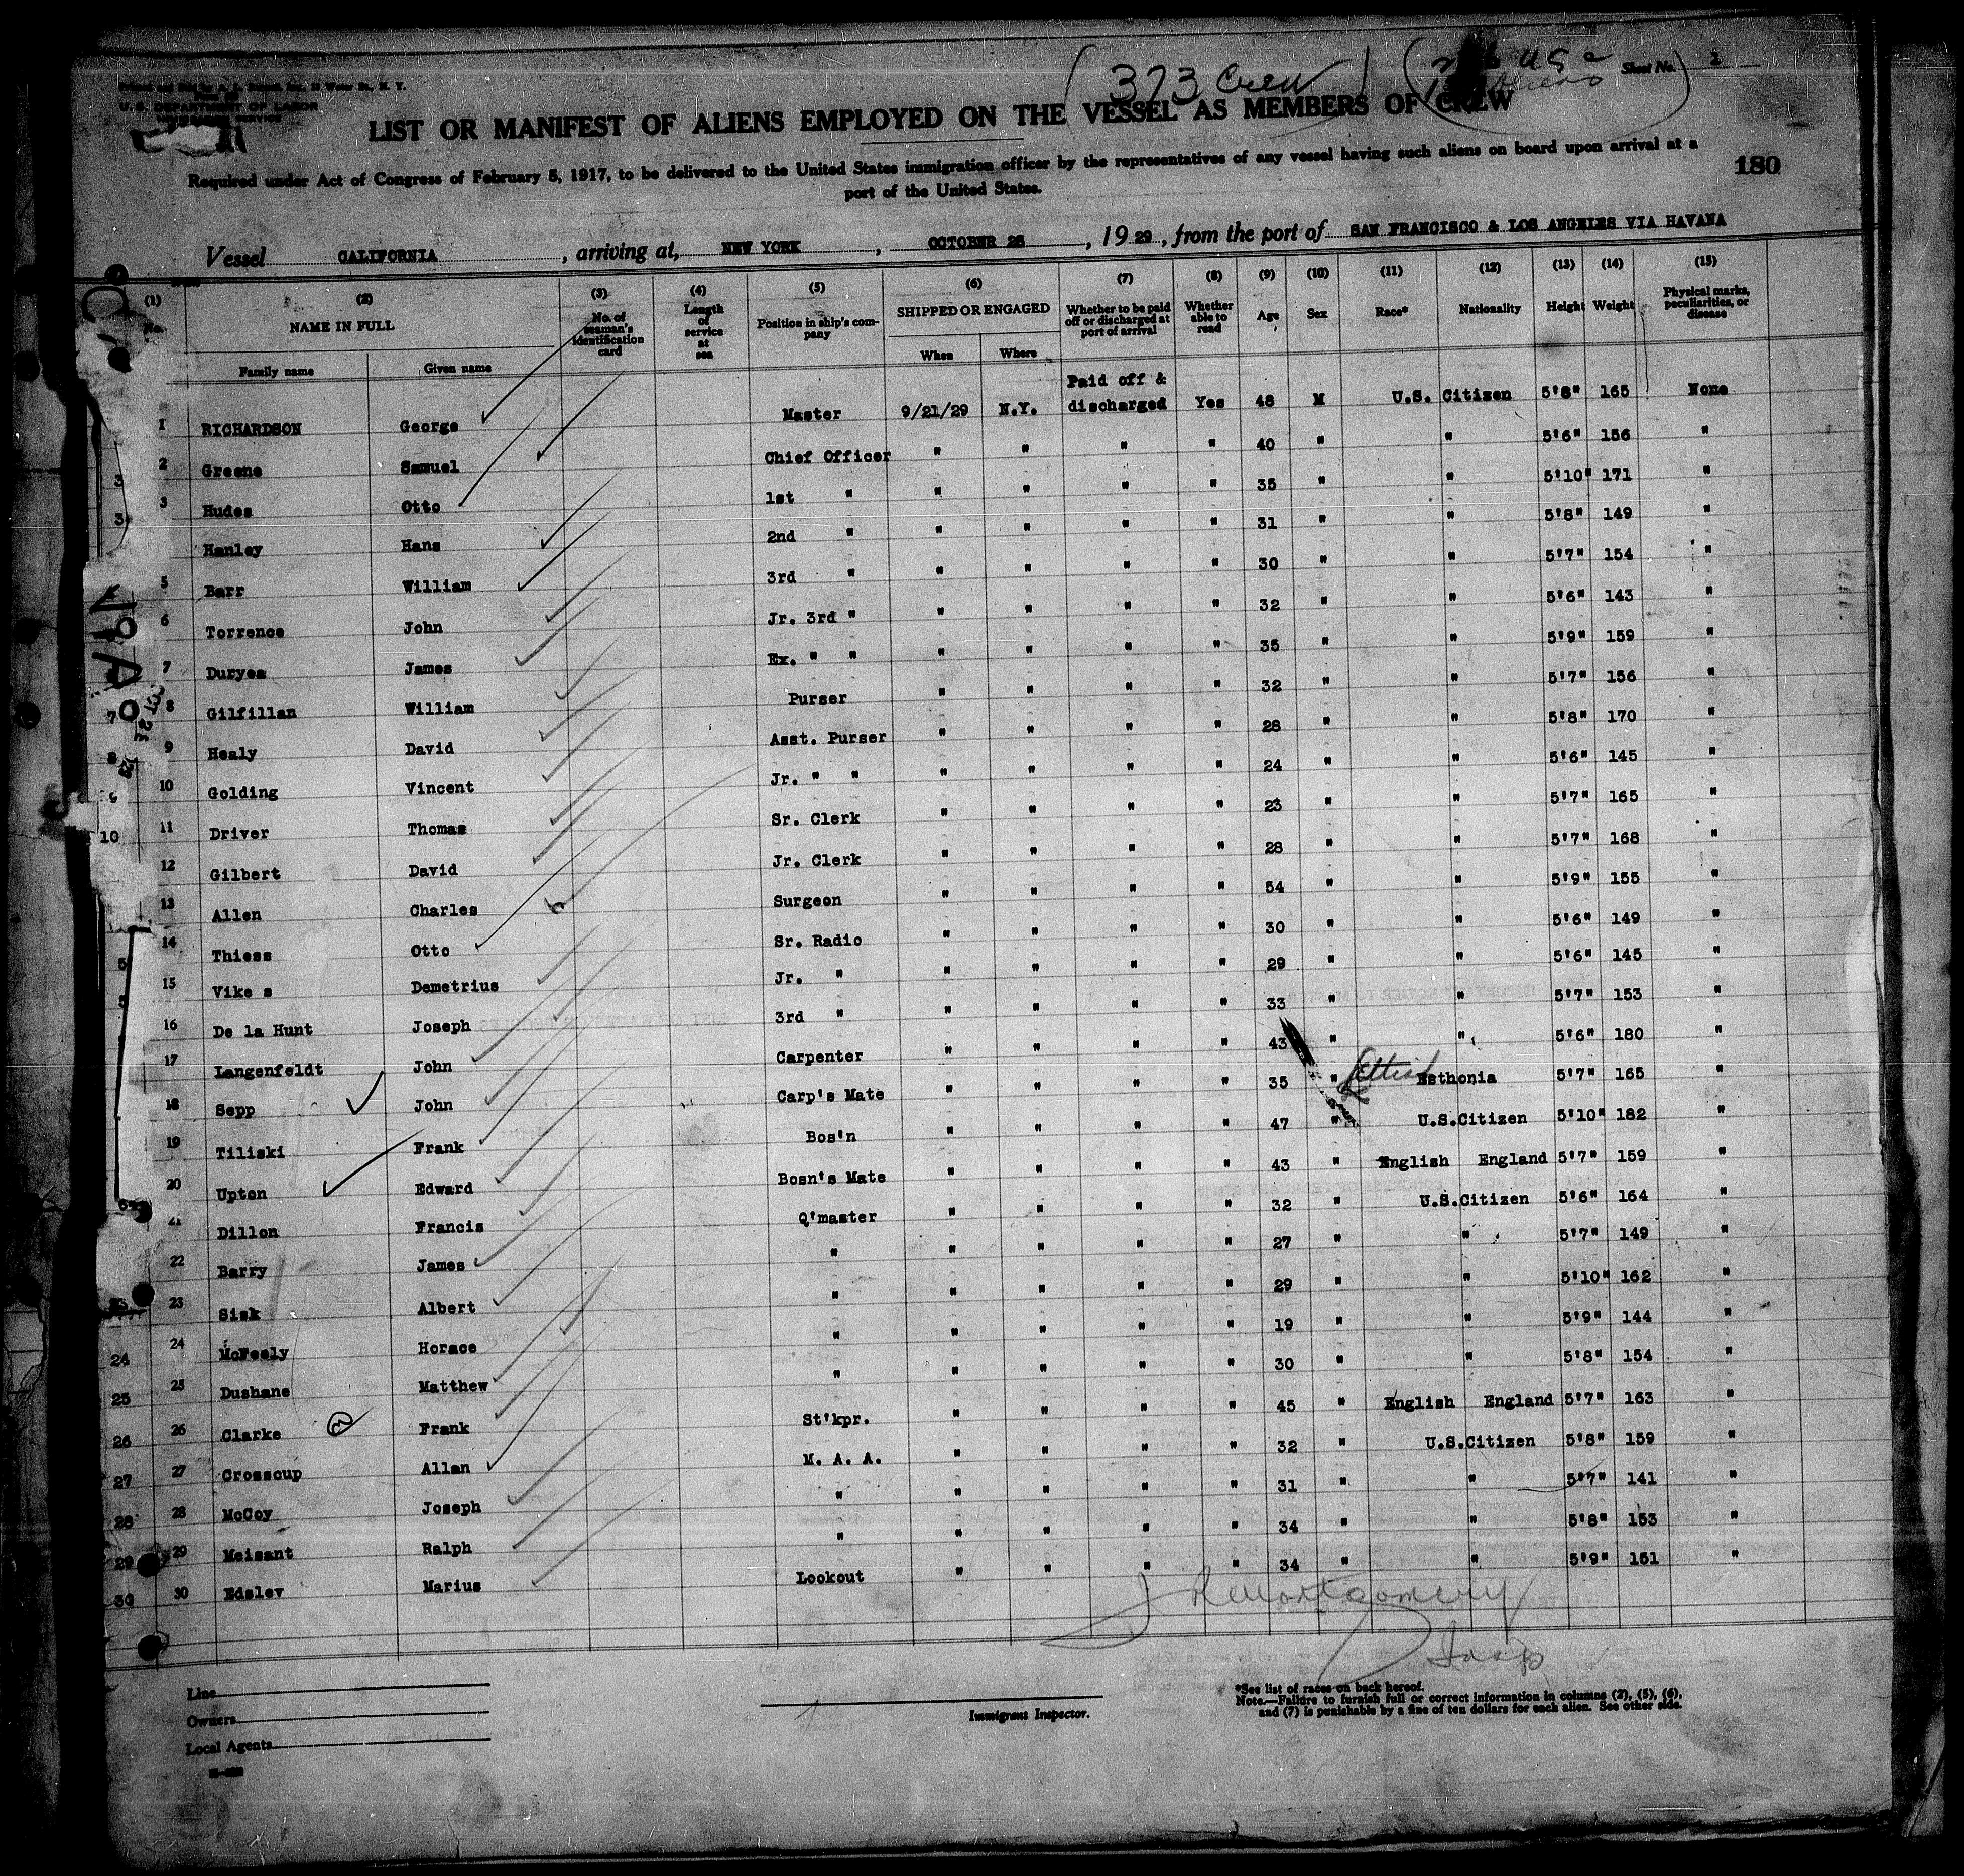 373 Crew
Sheet No. 1
U. S. DEPARTMENT OF LABOR
LIST OR MANIFEST OF ALIENS EMPLOYED ON THE VESSEL AS MEMBERS OF CREW
Required under Act of Congress of February 5, 1917, to be delivered to the United States immigration officer by the representatives of any vessel having such aliens on board upon arrival at a
port of the United States.
180
Vessel CALIFORNIA, arriving at, NEW YORK, OCTOBER 28, 19 29, from the port of SAN FRANCISCO & LOS ANGELES VIA HAVANA
(1) (2) (3) (4) (5) (6) (7) (8) (9) (10) (11) (12) (13) (14) (15)
No. NAME IN FULL No. of seaman's identification card Length of service at sea Position in ship's company SHIPPED OR ENGAGED Whether to be paid off or discharged at port of arrival Whether able to read Age Sex Race* Nationality Height Weight Physical marks, peculiarities, or disease
Family name Given name When Where
1 RICHARDSON George Master 9/21/29 N.Y. Paid off & discharged Yes 48 M U.S. Citizen 5'8" 165 None
2 Greene Samuel Chief Officer " " " " 40 " " 5'6" 156 "
3 Hudes Otto 1st " " " " " 35 " " 5'10" 171 "
Hanley Hans 2nd " " " " " 31 " " 5'8" 149 "
5 Barr William 3rd " " " " " 30 " " 5'7" 154 "
6 Torrence John Jr. 3rd " " " " " 32 " " 5'6" 143 "
7 Duryea James Ex. " " " " " " 35 " " 5'9" 159 "
8 Gilfillan William Purser " " " " 32 " " 5'7" 156 "
9 Healy David Asst. Purser " " " " 28 " " 5'8" 170 "
10 Golding Vincent Jr. " " " " " " 24 " " 5'6" 145 "
11 Driver Thomas Sr. Clerk " " " " 23 " " 5'7" 165 "
12 Gilbert David Jr. Clerk " " " " 28 " " 5'7" 168 "
13 Allen Charles Surgeon " " " " 54 " " 5'9" 155 "
14 Thiess Otto Sr. Radio " " " " 30 " " 5'6" 149 "
15 Vike s Demetrius Jr. " " " " " 29 " " 5'6" 145 "
16 De la Hunt Joseph 3rd " " " " " 33 " " 5'7" 153 "
17 Langenfeldt John Carpenter " " " " 43 " " 5'6" 180 "
18 Sepp John Carp's Mate " " " " 35 " Esthonia 5'7" 165 "
19 Tiliski Frank Bos'n " " " " 47 " U.S.Citizen 5'10" 182 "
20 Upton Edward Bosn's Mate " " " " 43 " English England 5'7" 159 "
21 Dillon Francis Q'master " " " " 32 " U.S.Citizen 5'6" 164 "
22 Barry James " " " " " 27 " " 5'7" 149 "
23 Sisk Albert " " " " " 29 " " 5'10" 162 "
24 24 McFeely Horace " " " " " 19 " " 5'9" 144 "
25 25 Dushane Matthew " " " " " 30 " " 5'8" 154 "
26 26 Clarke Frank St'kpr. " " " " 45 " English England 5'7" 163 "
27 27 Crosscup Allan M. A. A. " " " " 32 " U.S.Citizen 5'8" 159 "
28 28 McCoy Joseph " " " " " 31 " " 5'7" 141 "
29 29 Meisant Ralph " " " " " 34 " " 5'8" 153 "
30 30 Edslev Marius Lookout " " " " 34 " " 5'9" 151 "
Montgomery
Line
Owners
Local Agents
Immigrant Inspector.
*See list of races on back hereof.
Note.—Failure to furnish full or correct information in columns (2), (5), (6),
and (7) is punishable by a fine of ten dollars for each alien. See other side.